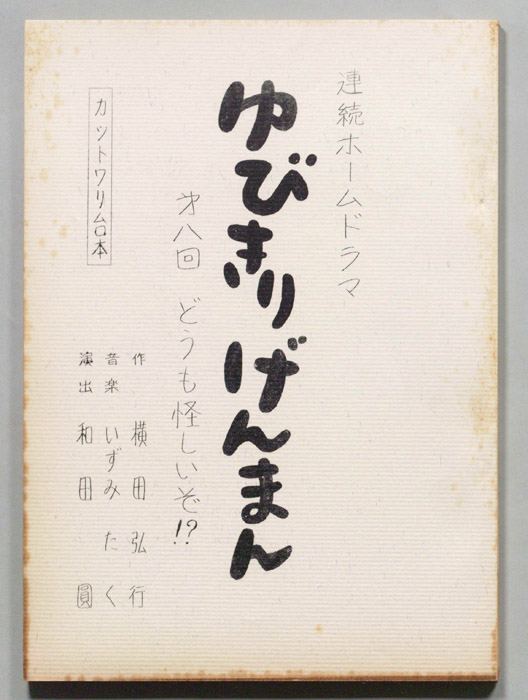 連続ホームドラマ
ゆびきりげんまん
第八回 どうも怪しいぞ!?
作 横田弘行
音楽 いずみたく
演出 和田 圓
カットワリ台本